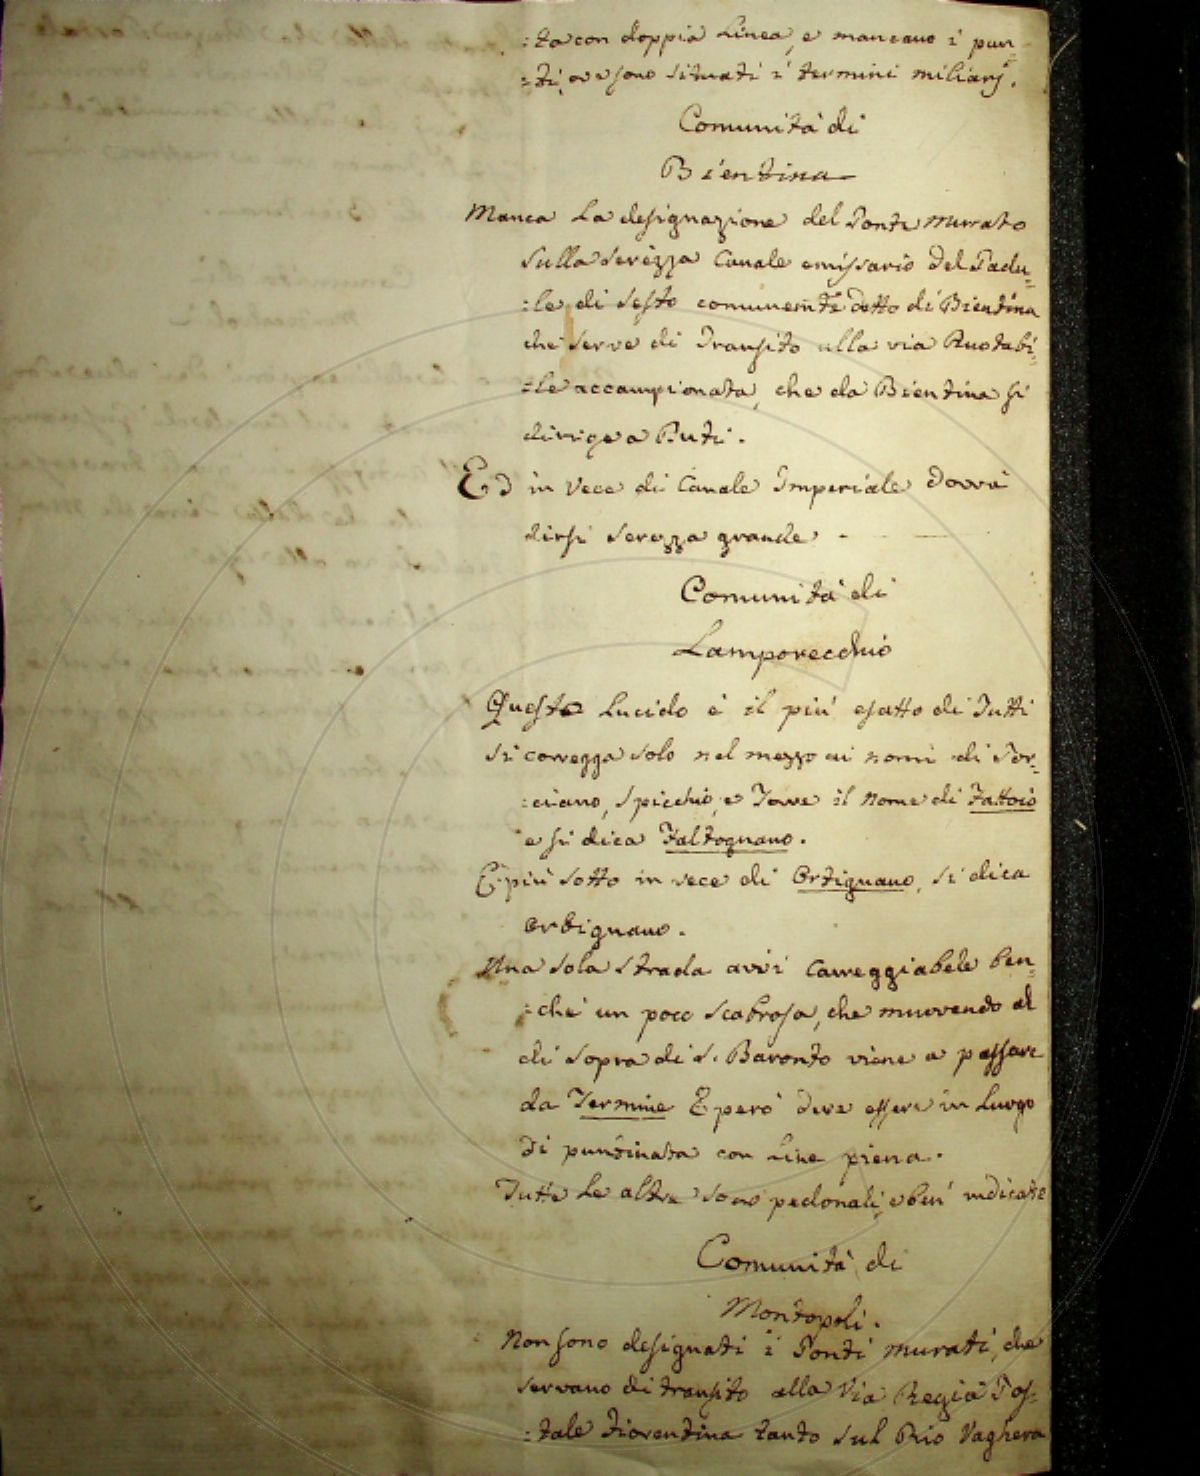 :ta con doppia Linea, e mancano i pun=
:ti, ove sono situati i termini miliarj.
Comunità di
Bientina
Manca La designazione del Ponte murato
sulla Serezza Canale emissario del Padu=
:le di Sesto comunem̃te detto di Bientina
che serve di Transito alla via Ruotabi=
:le accampionata, che da Bientina si
dirige a Buti.
Ed in Vece di Canale Imperiale dovrà
dirsi Serezza grande.
Comunità di
Lamporecchio
Questo Lucido è il più esatto di Tutti
si corregga solo nel mezzo ai nomi di Por=
:ciano, Spicchio, e Torre il nome di Fattoio
e si dica Faltognano.
E più sotto in vece di Ortignano, si dica
Orbignano.
Una sola strada avvi Carreggiabile ben=
:chè un poco scabrosa, che muovendo al
di sopra di S. Baronto viene a passare
da Termine E però deve essere in Luogo
di puntinata con Line piena.
Tutte Le altre sono pedonali, e ben' indicate
Comunità di
Montopoli.
Non sono designati i Ponti murati, che
servano di transito alla Via Regia Pos=
:tale Fiorentina tanto sul Rio Vaghera